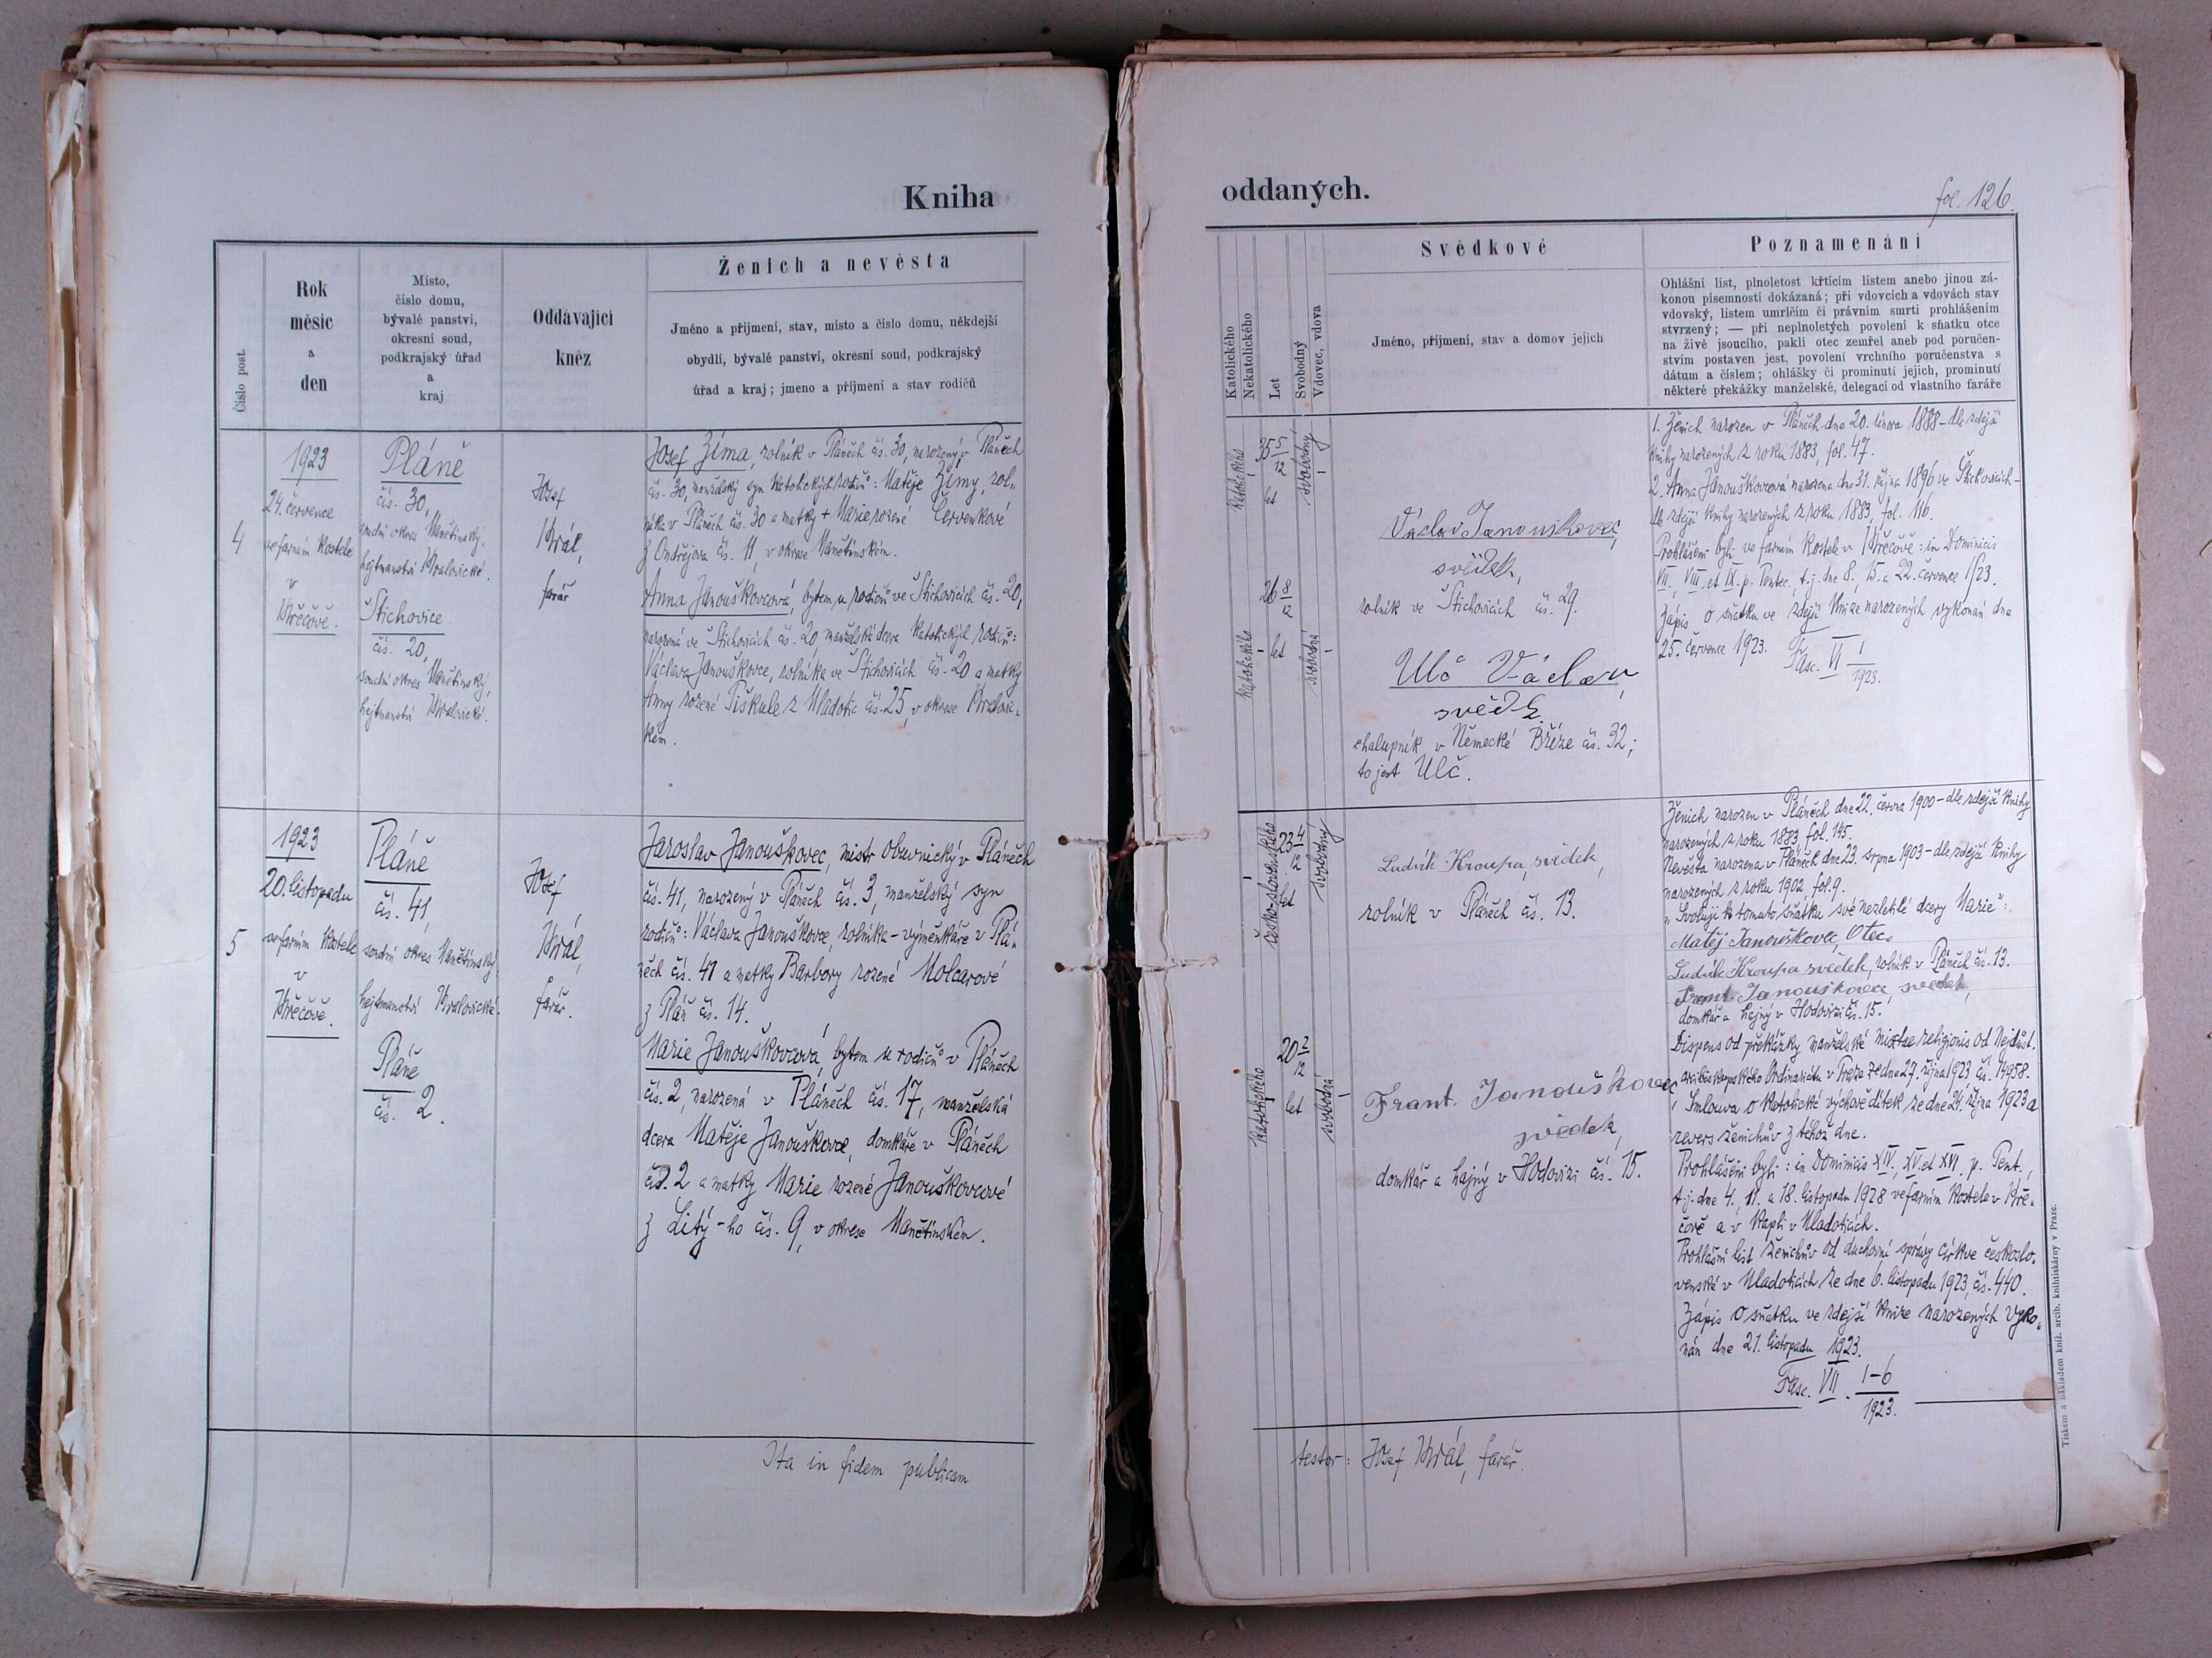 Kniha
Číslo post.
Rok
měsíc
a
den
Místo,
číslo domu,
bývalé panství,
okresní soud,
podkrajský úřad
a
kraj
Oddávající
kněz
Ženich a nevěsta
Jméno a příjmení, stav, místo a číslo domu, někdejší
obydlí, bývalé panství, okresní soud, podkrajský
úřad a kraj; jmeno a příjmení a stav rodičů
4
1923
24. července
ve farním kostele
v
Křečově.
Pláně
čís. 30,
soudní okres Manětínský,
hejtmanství Kralovické.
Štichovice
čís. 20,
soudní okres Manětínský,
hejtmanství Kralovické.
Josef
Král,
farář
Josef Zíma, rolník v Pláněch čís. 30, narozený v Pláněch
čís. 30, manželský syn katolických rodičů: Matěje Zímy, rol-
níka v Pláněch čís. 30 a matky + Marie rozené Červenkové
z Ondřejova čís. 11, v okrese Manětínském.
Anna Janouškovcová, bytem u rodičů ve Štichovicích čís. 20,
narozená ve Štichovicích čís. 20, manželská dcera katolických rodičů:
Václava Janouškovce, rolníka ve Štichovicích čís. 20 a matky
Anny rozené Piškule z Mladotic čís. 25, v okrese Kralovic-
kém.
5
1923
20. listopadu
ve farním kostele
v
Křečově.
Pláně
čís. 41,
soudní okres Manětínský,
hejtmanství Kralovické.
Pláně
čís. 2.
Josef
Král,
farář.
Jaroslav Janouškovec, mistr obuvnický v Pláněch
čís. 41, narozený v Pláněch čís. 3, manželský syn
rodičů: Václava Janouškovce, rolníka - výměnkáře v Plá-
něch čís. 41 a matky Barbory rozené Molcarové
z Plán čís. 14.
Marie Janouškovcová, bytem u rodičů v Pláněch
čís. 2, narozená v Pláněch čís. 17, manželská
dcera Matěje Janouškovce, domkáře v Pláněch
čís. 2 a matky Marie rozené Janouškovcové
z Litý-ho čís. 9, v okrese Manětínském.
Ita in fidem publicam
oddaných.
fol. 126.
Katolického
Nekatolického
Let
Svobodný
Vdovec, vdova
Svědkové
Jméno, příjmení, stav a domov jejich
Poznamenání
Ohlášní list, plnoletost křtícím listem anebo jinou zá-
konou písemností dokázaná; při vdovcích a vdovách stav
vdovský, listem umrlčím či právním smrti prohlášením
stvrzený; — při neplnoletých povolení k sňatku otce
na živě jsoucího, pakli otec zemřel aneb pod poručen-
stvím postaven jest, povolení vrchního poručenstva s
dátum a číslem; ohlášky či prominutí jejich, prominutí
některé překážky manželské, delegací od vlastního faráře
katolického
35 5/12
let
svobodný
katolického
26 8/12
let
svobodná
Václav Janouškovec,
svědek,
rolník ve Štichovicích čís. 29.
Ulč Václav,
svědk
chalupník v Německé Bříze čís. 32;
to jest Ulč.
1. Ženich narozen v Pláněch dne 20. února 1888 - dle zdejší
knihy narozených z roku 1883, fol. 47.
2. Anna Janouškovcová narozena dne 31. října 1896 ve Štichovicích -
dle zdejší knihy narozených z roku 1883, fol. 116.
Prohlášeni byli ve farním kostele v Křečově: in Dominicis
VII., VIII. et IX. p. Pentec., t. j. dne 8., 15. a 22. července 1923.
Zápis o sňatku ve zdejší knize narozených vykonán dne
25. července 1923.
Fasc. VI 1/1923.
česko-slovenského
23 4/12
let
svobodný
katolického
20 2/12
let
svobodná
Ludvík Kroupa, svědek,
rolník v Pláněch čís. 13.
Frant. Janouškovec,
svědek,
domkář a hajný v Hodovizi čís. 15.
Ženich narozen v Pláněch dne 22. června 1900 - dle zdejší knihy
narozených z roku 1883, fol. 145.
Nevěsta narozena v Pláněch dne 23. srpna 1903 - dle zdejší knihy
narozených z roku 1902, fol. 9.
„Svoluji k tomuto sňatku své nezletilé dcery Marie":
Matěj Janouškovec, Otec
Ludvík Kroupa svědek, rolník v Pláněch čís. 13.
Frant. Janouškovec, svědek,
domkář a hajný v Hodovizi čís. 15.
Dispens od překážky manželské mixtae religionis od Nejdůst.
arcibiskupského Ordinariátu v Praze ze dne 27. října 1923 čís. 14958.
Smlouva o katolické výchově dítek ze dne 24. října 1923 a
revers ženichův z téhož dne.
Prohlášeni byli: in Dominicis XIV., XV. et XVI. p. Pent.,
t. j. dne 4., 11. a 18. listopadu 1928 ve farním kostele v Kře-
čově a v kapli v Mladoticích.
Prohlašní list ženichův od duchovní správy církve českoslo-
venské v Mladoticích ze dne 6. listopadu 1923, čís. 440.
Zápis o sňatku ve zdejší knize narozených vyko-
nán dne 21. listopadu 1923.
Fasc. VII. 1-6/1923.
testor: Josef Král, farář.
Tiskem a nákladem kníž. arcib. knihtiskárny v Praze.